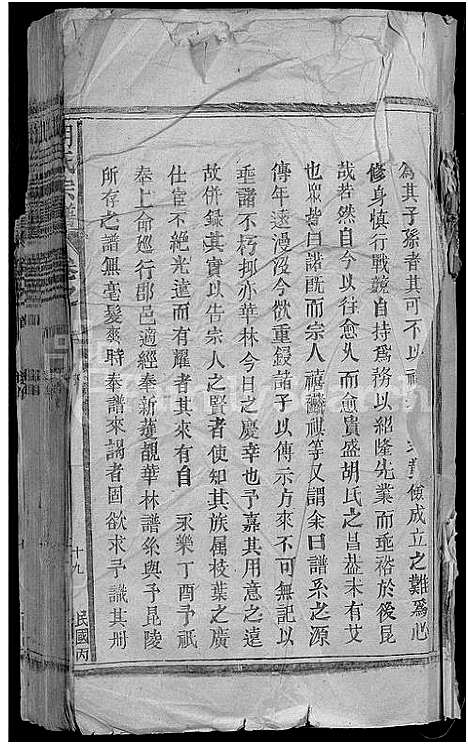 為其子孫者其可不以 儉成立之難為心
修身慎行戰兢自持為務以紹隆先業而垂裕於後昆
哉若然自今以往愈久而愈貴盛胡氏之昌葢未有艾
也眾皆曰諾既而宗人禧麟祺等又謂余曰譜系之源
傳年遠漫沒今欲重錄諸子以傳示方來不可無記以
垂諸不朽抑亦華林今日之慶幸也予嘉其用意之遠
故併錄其實以告宗人之賢者使知其族属枝葉之廣
仕宦不絶光遠而有耀者其來有自 永樂丁酉予祇
奉上命廵行郡邑適經奉新薳覩華林譜系與予昆陵
所存之譜無毫髮爽時奉譜來謁者固欲求予識其刋
氏宗譜
十九
民國丙